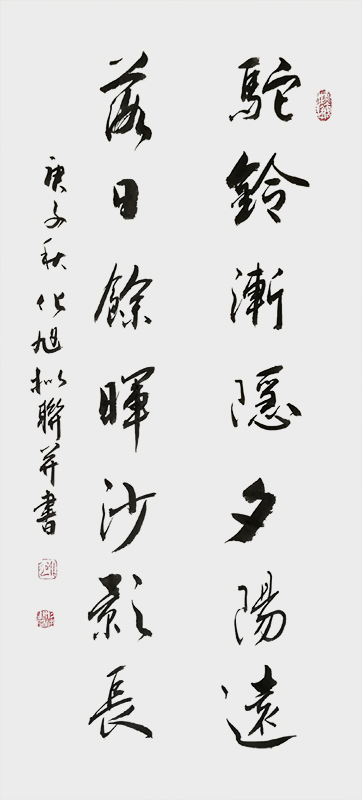 駝鈴漸隱夕陽遠
落日餘暉沙影長
庚子秋化旭拟聯并書